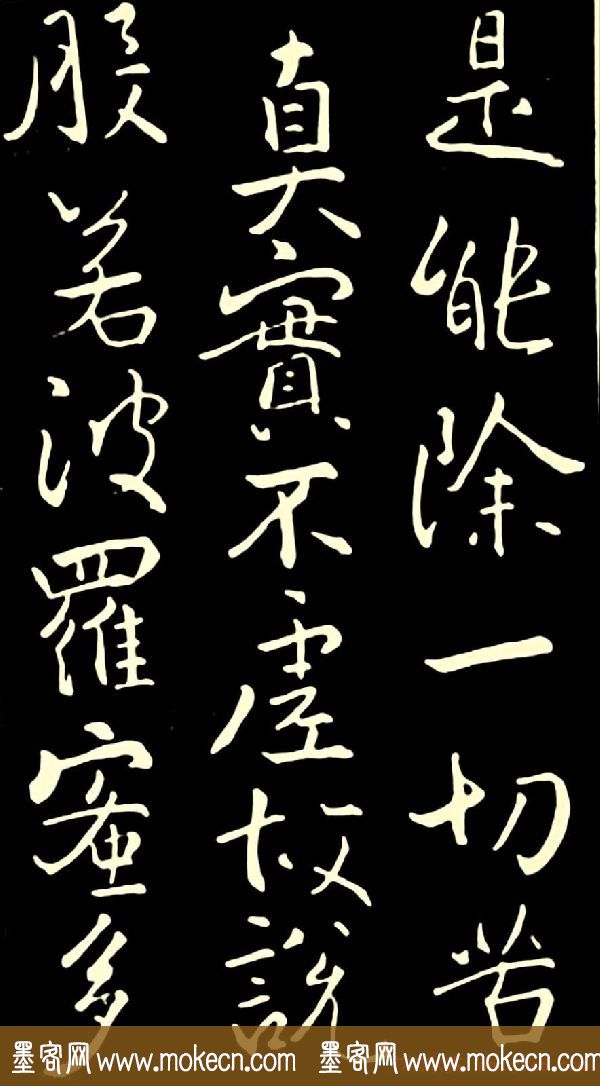 是能除一切苦
真實不虛故說
般若波羅蜜多
墨客网 www.mokecn.com 墨客网 www.mokecn.com